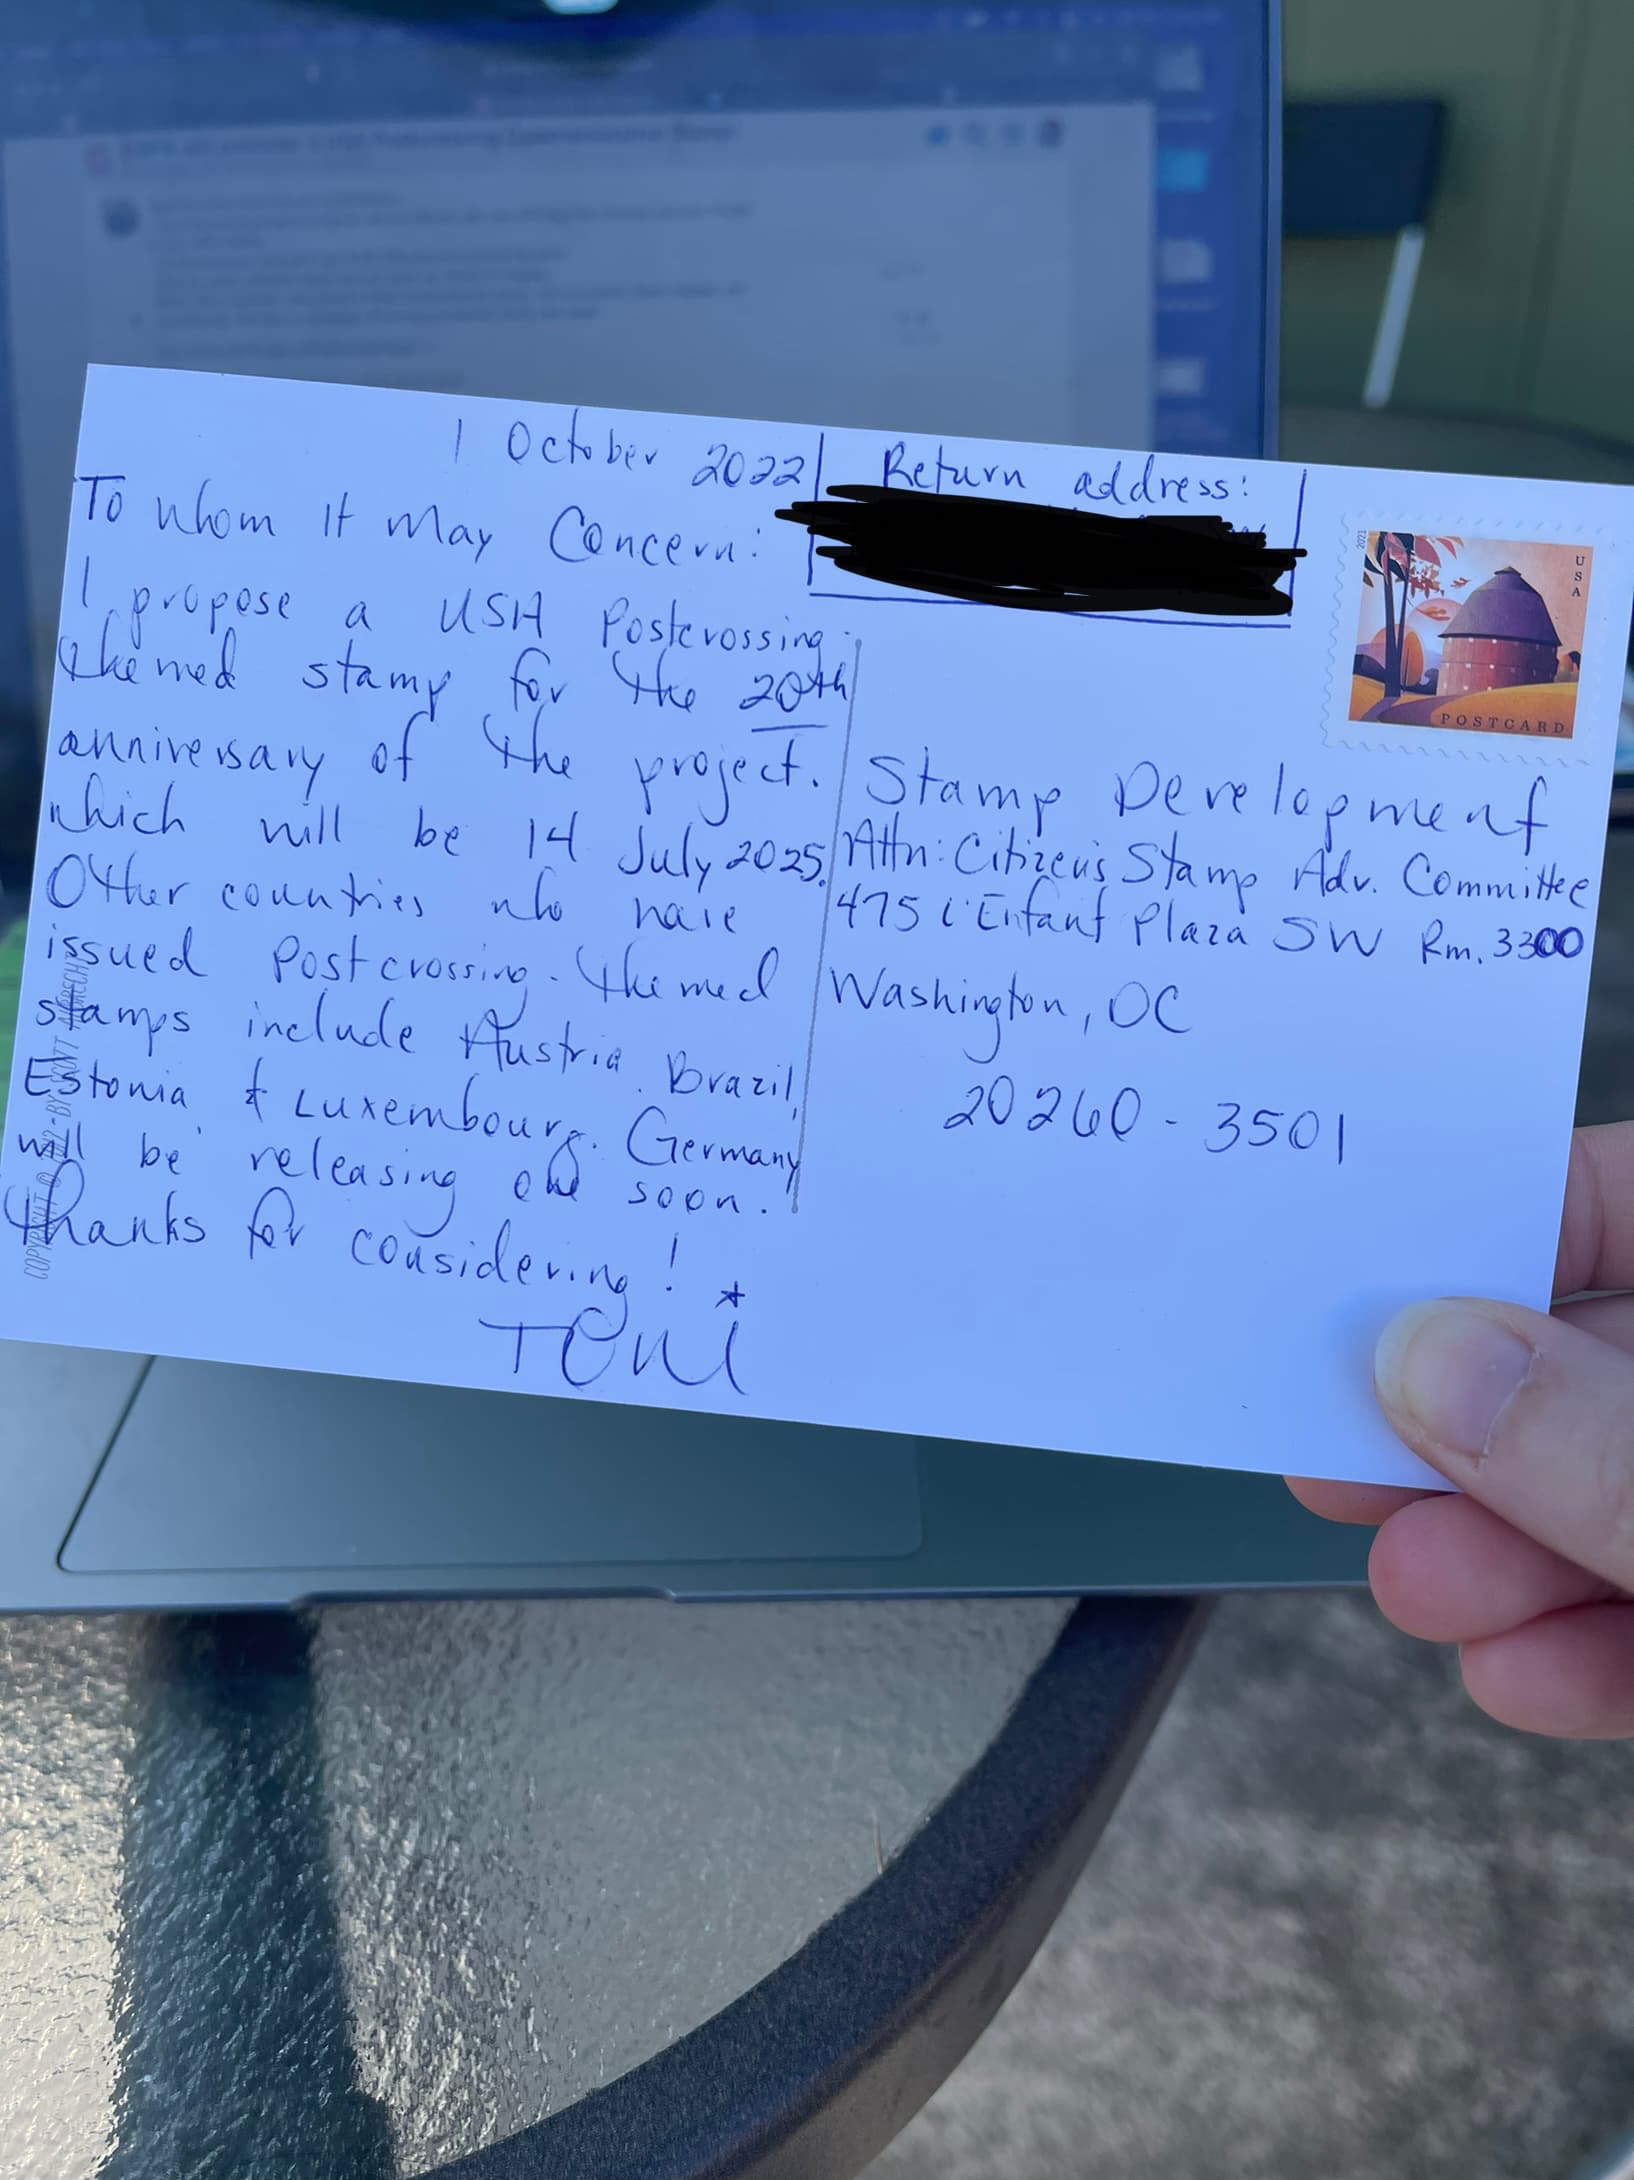 1 October 2022
To Whom It May Concern:
I propose a USA Postcrossing-
themed stamp for the 20th
anniversary of the project.
which will be 14 July 2025.
Other countries who have
issued Postcrossing-themed
stamps include Austria, Brazil,
Estonia & Luxembourg. Germany
will be releasing one soon.
Thanks for considering!
Toni
Return address:
2021
USA
POSTCARD
Stamp Development
Attn: Citizen's Stamp Adv. Committee
475 L'Enfant Plaza SW Rm. 3300
Washington, DC
20260-3501